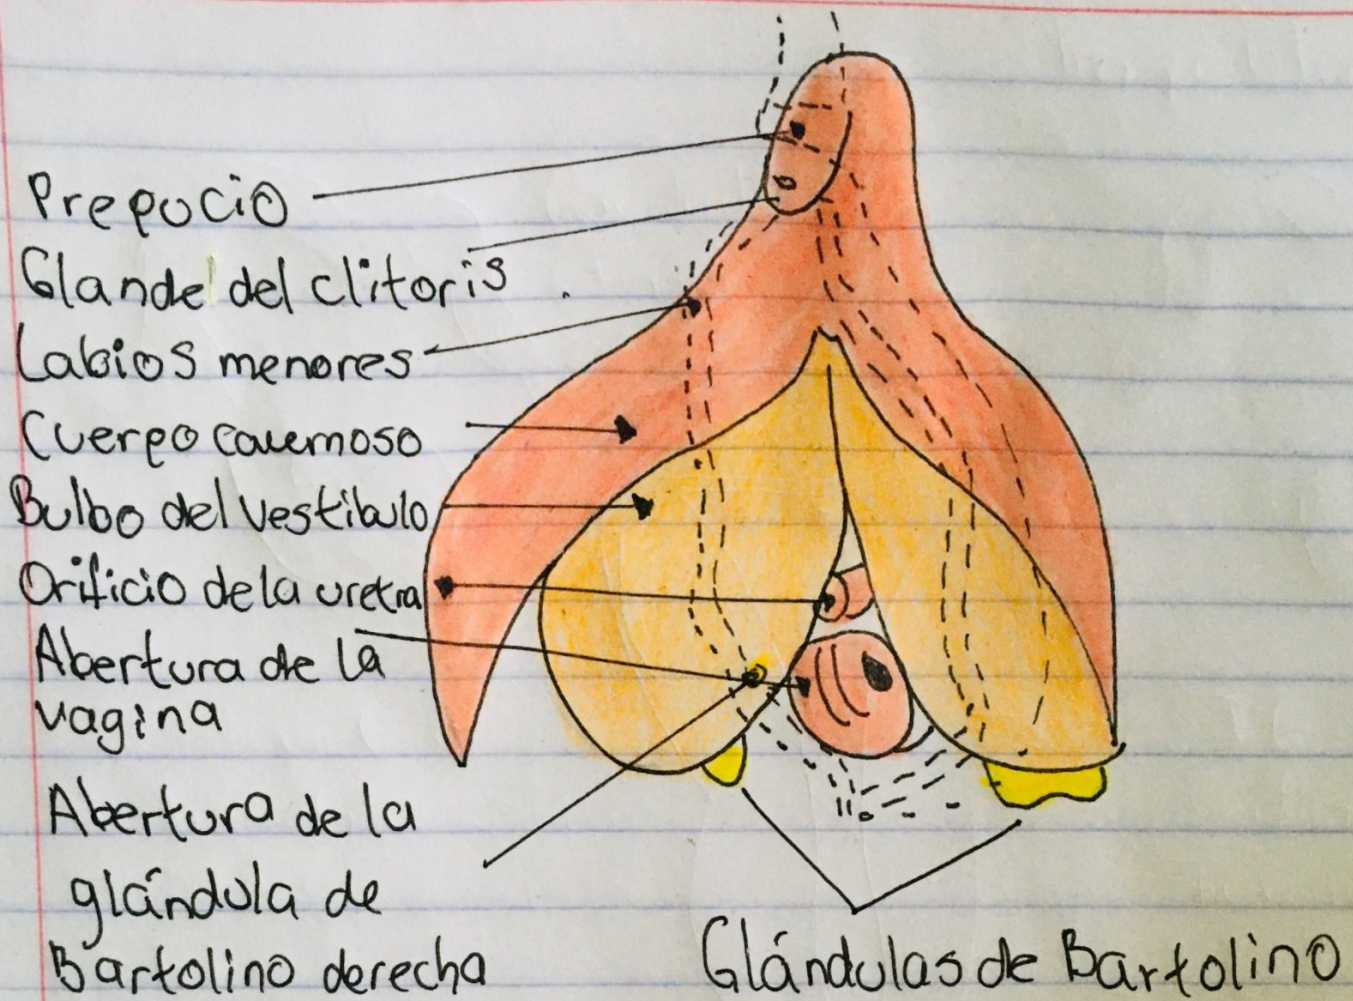 Prepucio
Glande del clitoris
Labios menores
Cuerpo cavernoso
Bulbo del vestibulo
Orificio de la uretra
Abertura de la
vagina
Abertura de la
glándula de
Bartolino derecha
Glándulas de Bartolino